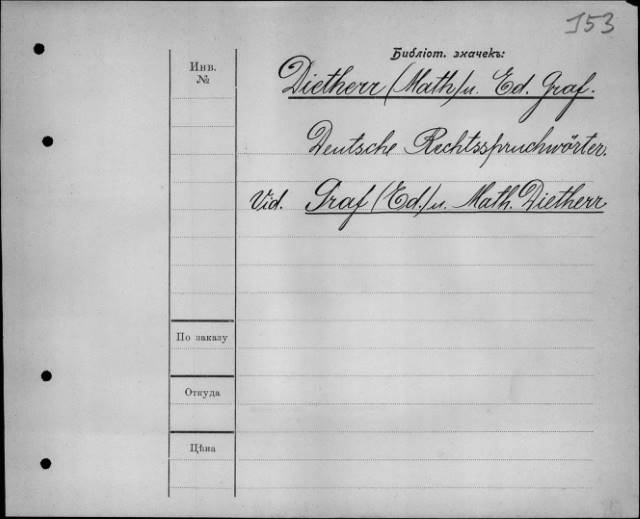 153
Библіот. значекъ:
Инв.
№
Dietherr (Math) u. Ed. Graf.
Deutsche Rechtsspruchwörter.
Vid. Graf (Ed.) u. Math. Dietherr
По заказу
Откуда
Цѣна